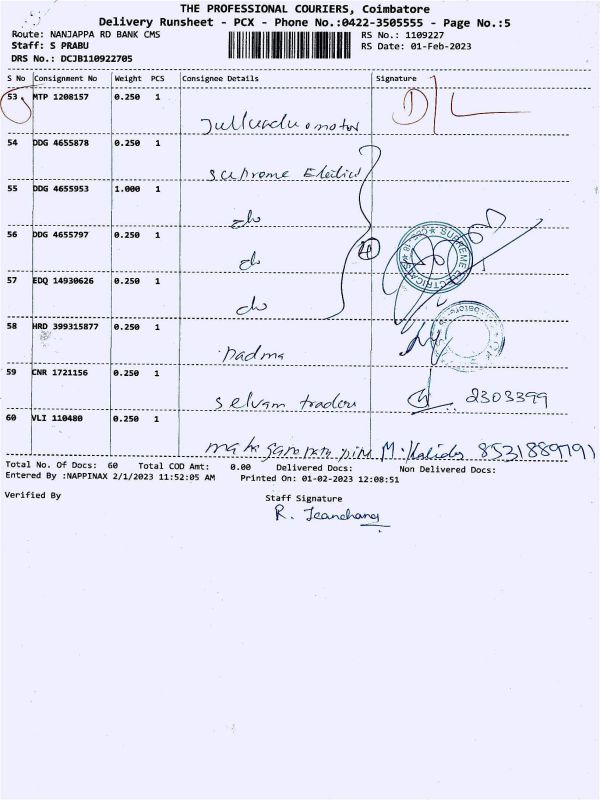 THE PROFESSIONAL COURIERS, Coimbatore
Delivery Runsheet - PCX - Phone No.:0422-3505555 - Page No.:5
Route: NANJAPPA RD BANK CMS RS No.: 1109227
Staff: S PRABU RS Date: 01-Feb-2023
DRS No.: DCJB110922705
S No Consignment No Weight PCS Consignee Details Signature
53 MTP 1208157 0.250 1
motor
54 DDG 4655878 0.250 1
supreme
55 DDG 4655953 1.000 1
do
56 DDG 4655797 0.250 1
do
4
SUPREME ELECTRICALS
57 EDQ 14930626 0.250 1
do
58 HRD 399315877 0.250 1
padma
59 CNR 1721156 0.250 1
selvam traders 2303399
60 VLI 110480 0.250 1
M. 8531889791
Total No. Of Docs: 60 Total COD Amt: 0.00 Delivered Docs: Non Delivered Docs:
Entered By :NAPPINAX 2/1/2023 11:52:05 AM Printed On: 01-02-2023 12:08:51
Verified By Staff Signature
R.